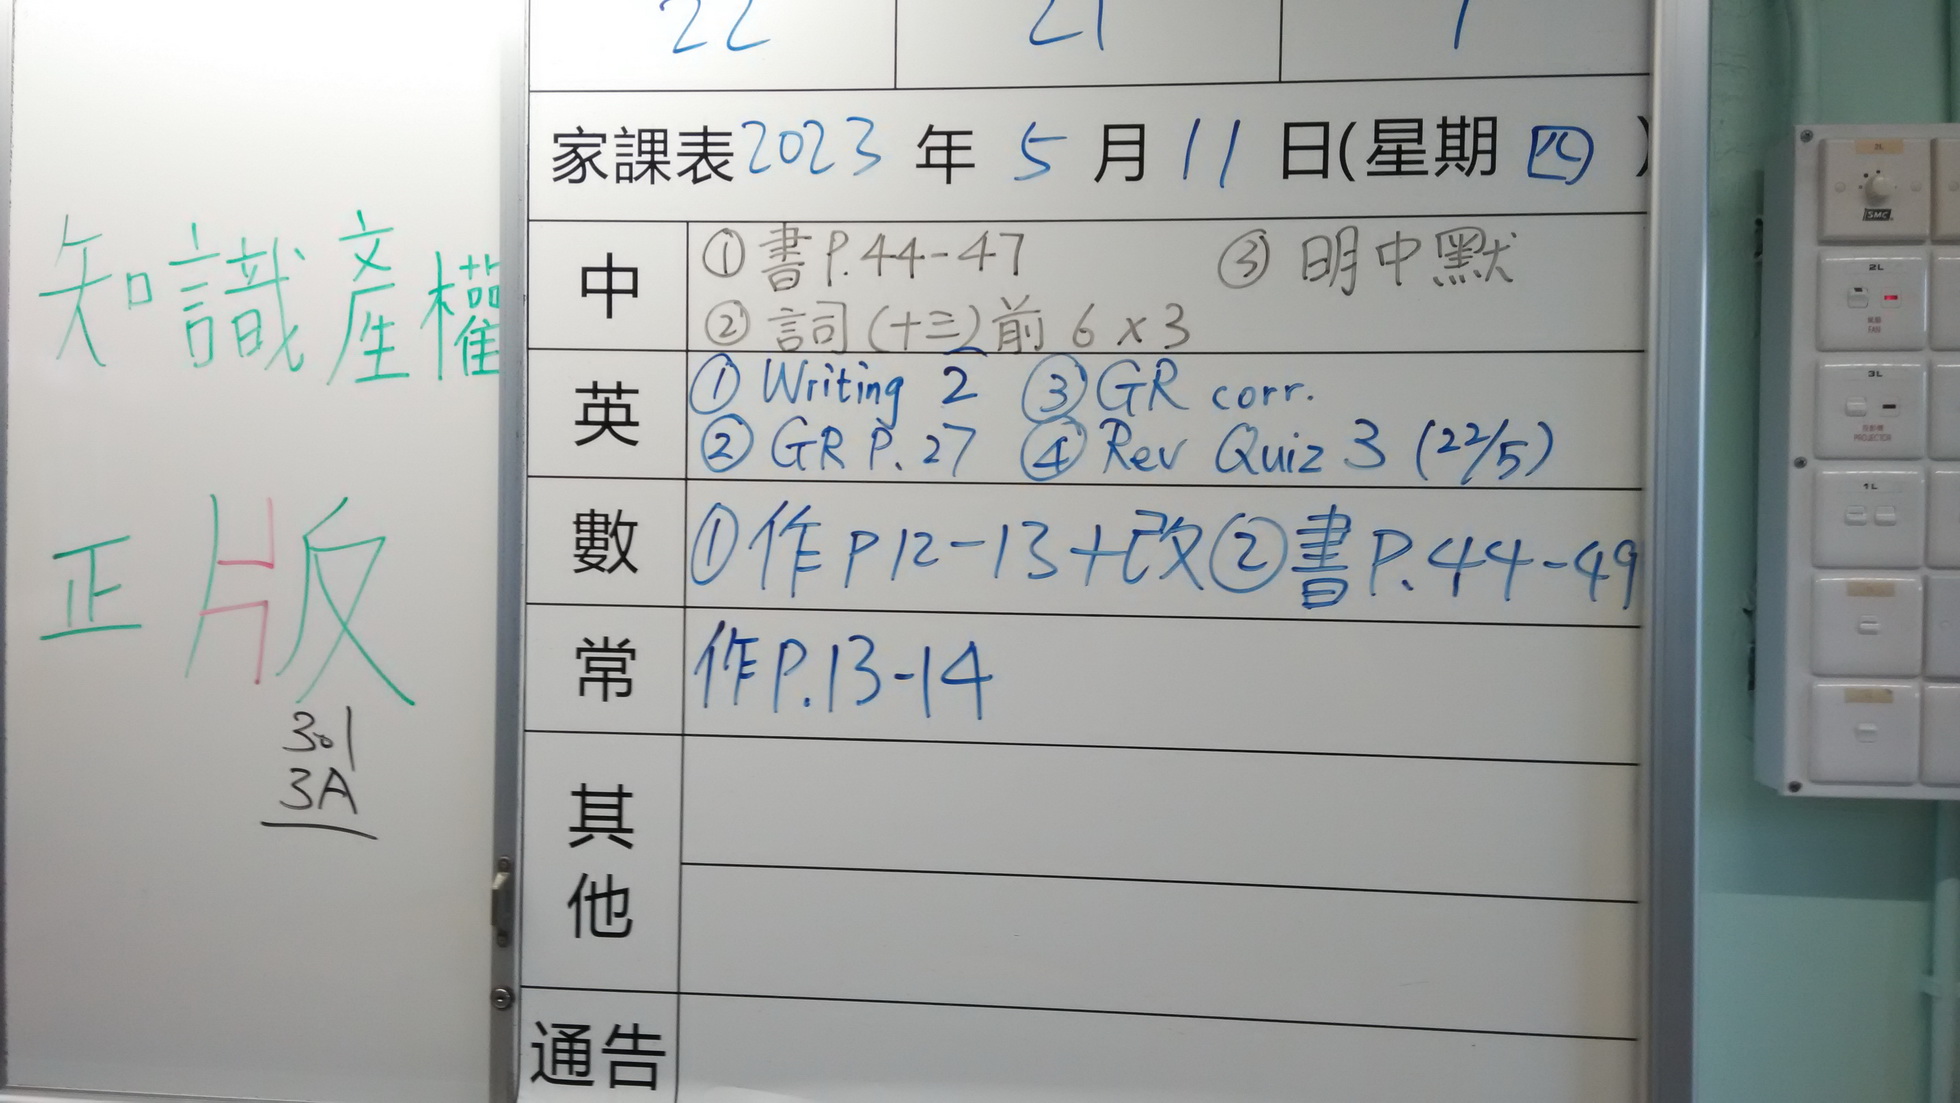 知識產權
正版
3.1
3A
22 21 1
家課表2023年5月11日(星期四)
中
①書P.44-47 ③明中默
②詞(十三)前6x3
英
①Writing 2 ③GR corr.
②GR P.27 ④Rev Quiz 3 (22/5)
數
①作P12-13+改②書P.44-49
常
作P.13-14
其他
通告
SMC
2L
FAN
3L
PROJECTOR
1L